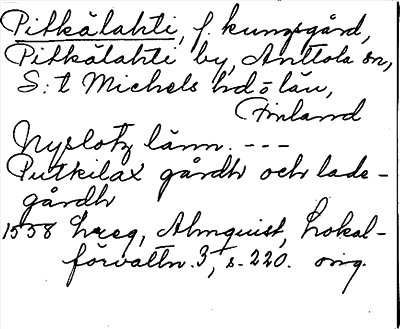 Pitkälahti, f. kungsgård,
Pitkälahti by, Anttola sn,
S:t Michels hd o län,
Finland
Nyslotz länn. ---
Putkilax gårdh och lade-
gårdh
1558 hreg, Almquist, Lokal-
förvaltn. 3, s. 220. orig.